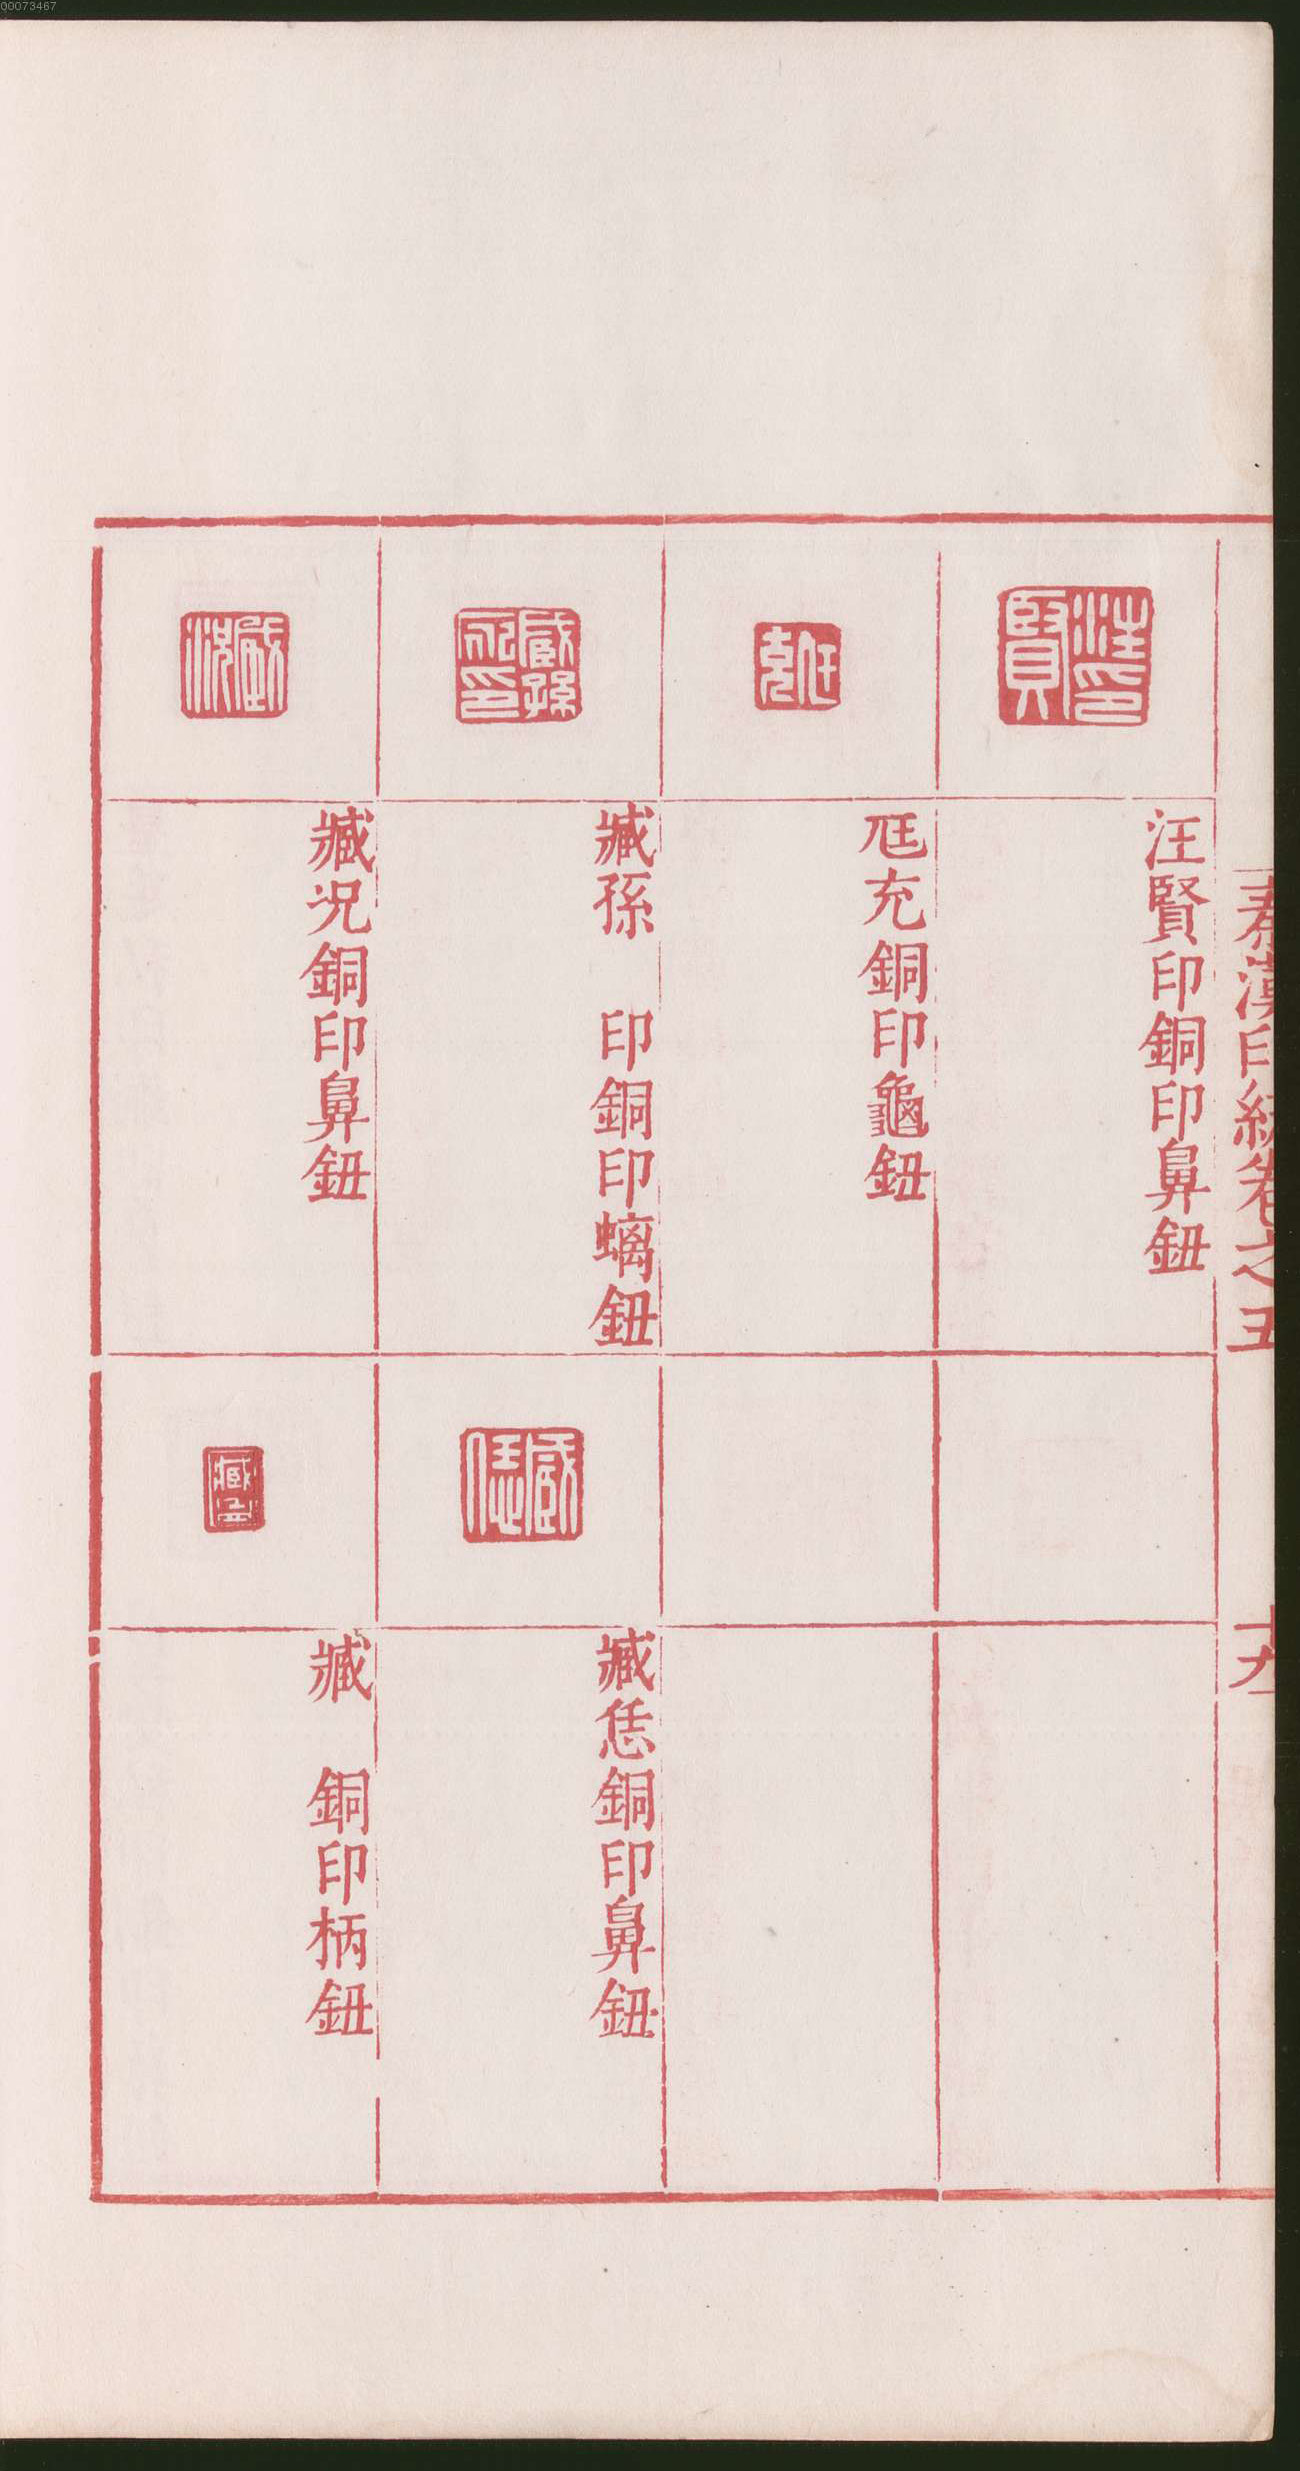 00073467
秦漢印統卷之五
十九
汪賢印銅印鼻鈕
尫充銅印龜鈕
臧孫　印銅印螭鈕
臧況銅印鼻鈕
臧恁銅印鼻鈕
臧　銅印柄鈕